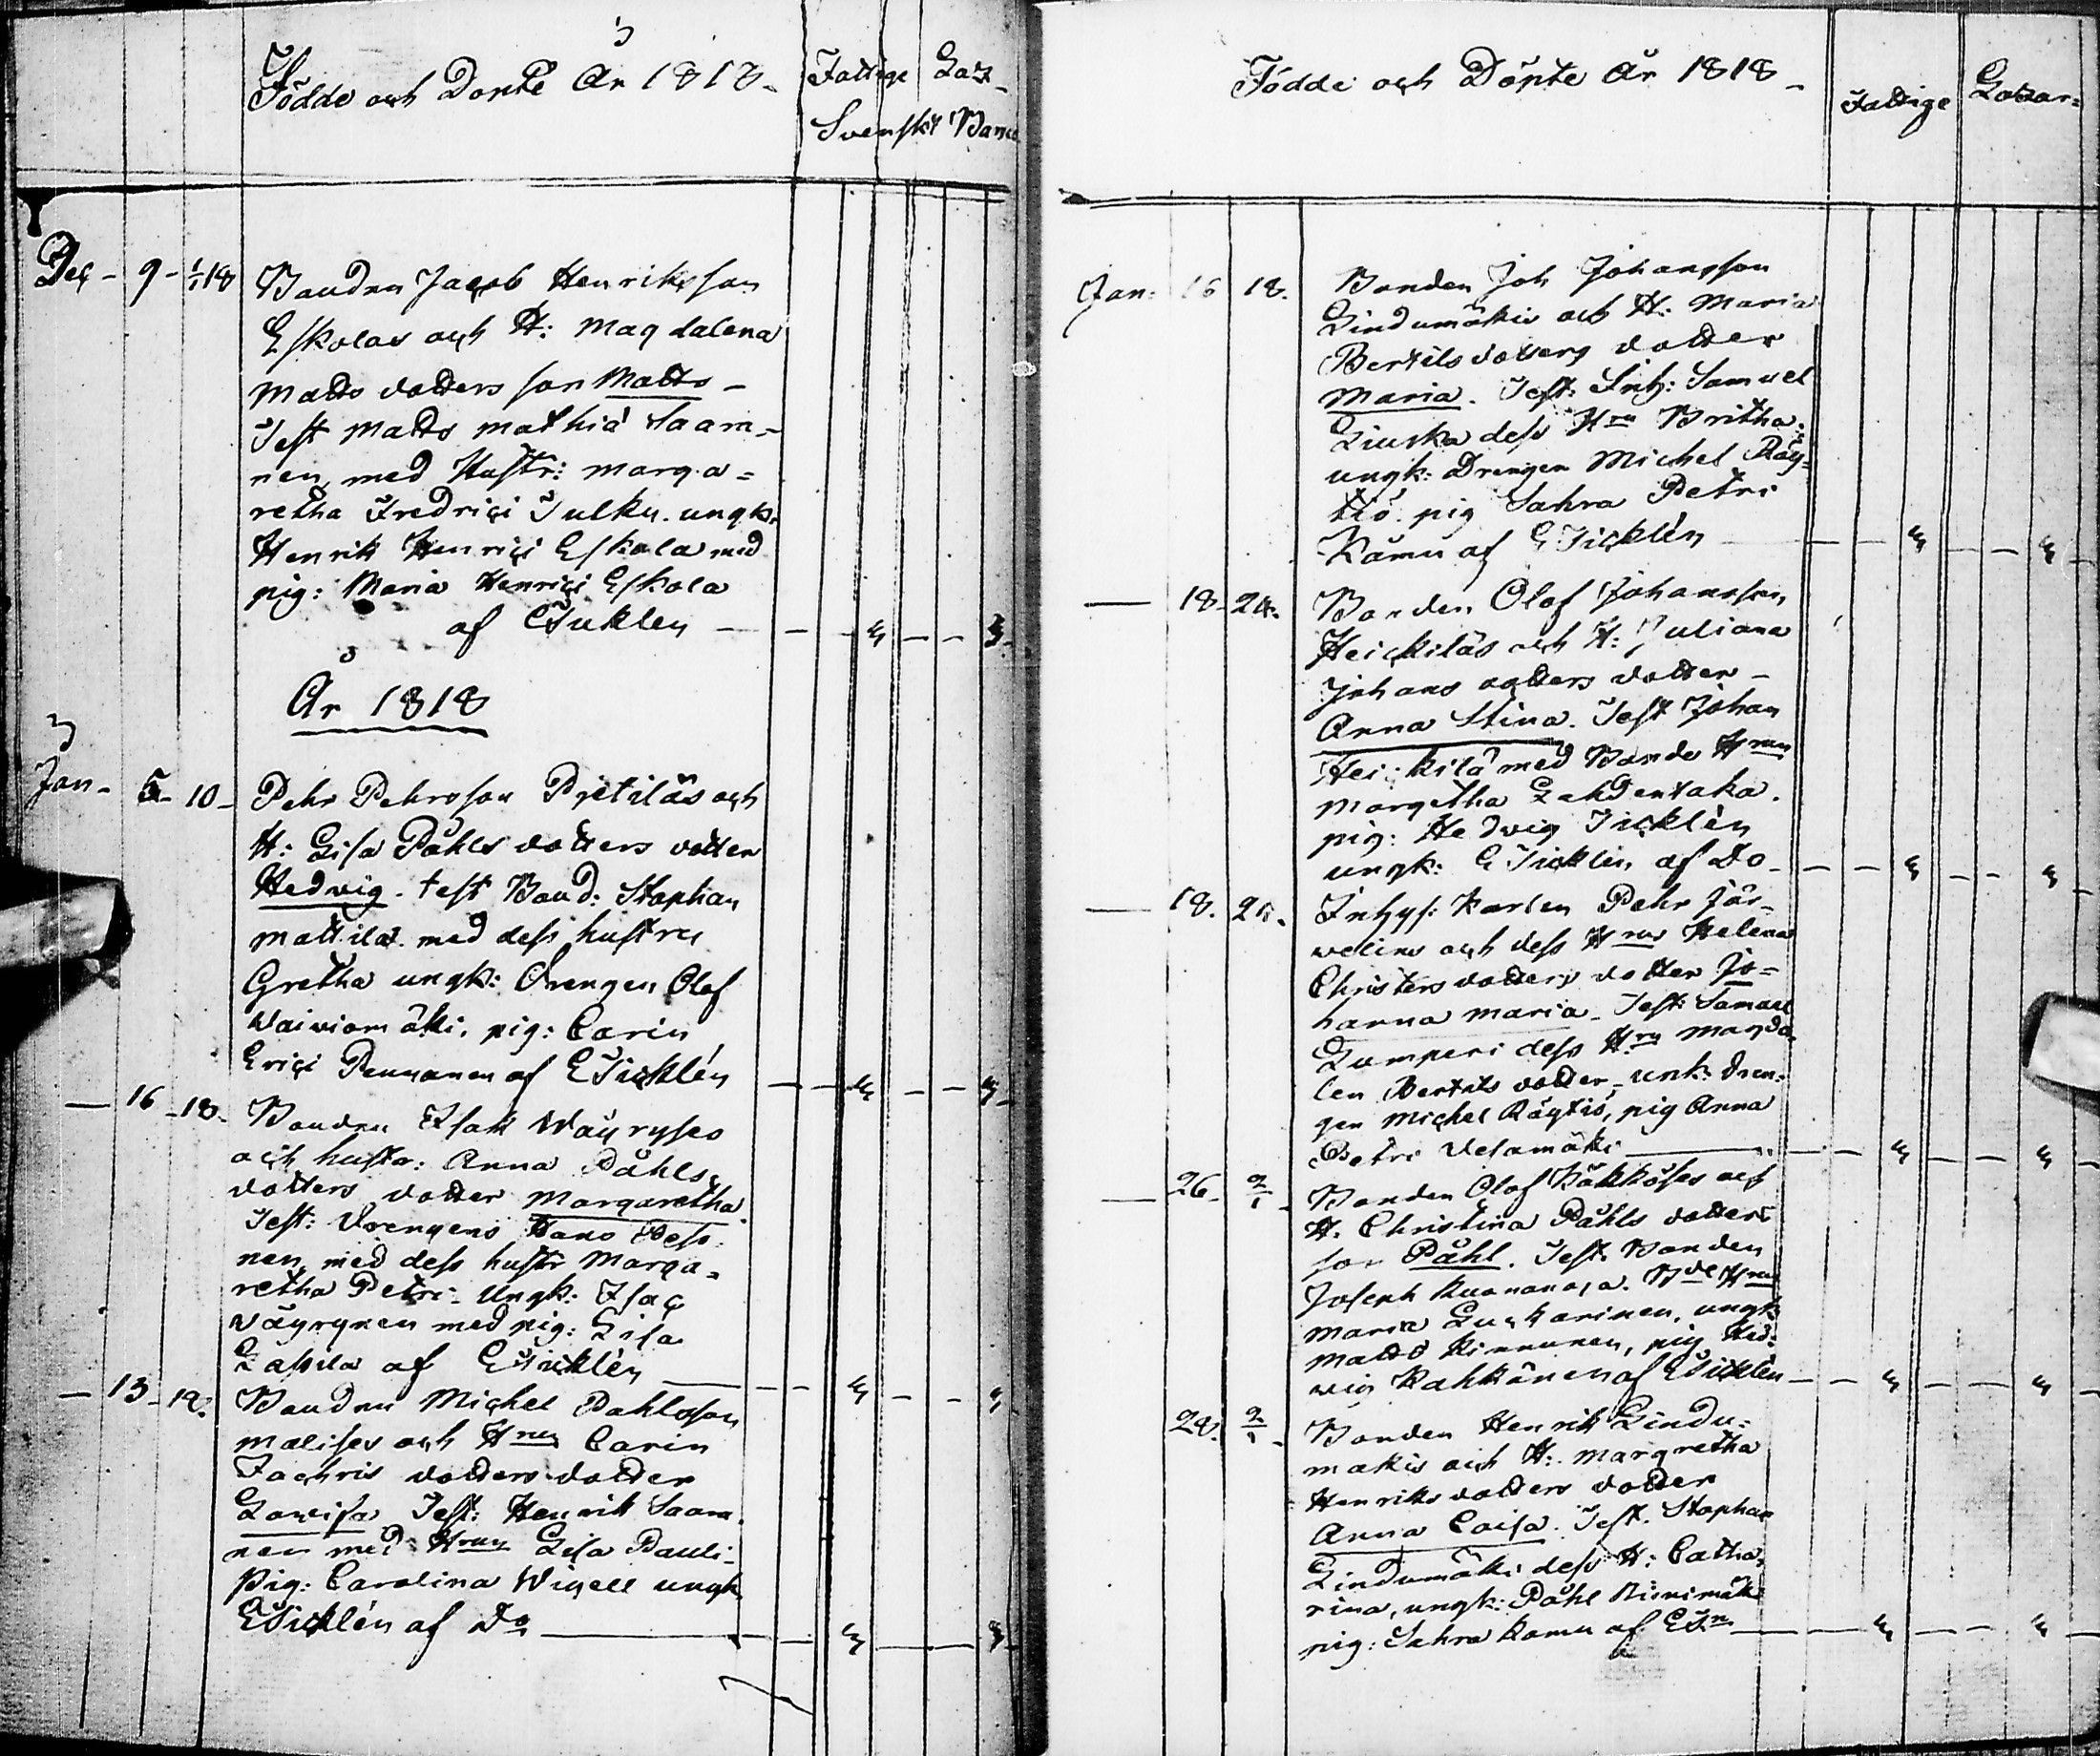 Födde och Döpte År 1818. Fattige Laz-
Svenskt Banco
Dec - 9 - 1/1 18 Bonden Jacob Henriksson
Eskolas och H: Magdalena
Matts dotters son Matts -
Test Matts Mathiæ Saara-
nen, med Hustr: Marga=
retha Fredrici Julku. ungk.
Henrik Henrici Eskola med
pig: Maria Henrici Eskola
af Eicklen - 4 - 3
År 1818
Jan - 5 - 10 - Pehr Pehrsson Pietiläs och
H: Lisa Påhls dotters dotter
Hedvig. test Bond: Staphan
Mattila med dess hustru
Gretha ungk: Drengen Olof
Waiviomäki, pig: Carin
Erici Pennanen af EICklén - 4 - 4
- 16 - 18. Bonden Isak Wäyryses
och hustr: Anna Påhls
dotters dotter Margaretha.
Test: Drengens Hans Deso
nen, med dess hustr Marga=
retha Petri. Ungk: Isac
Wäyrynen med pig: Lisa
Lapila af Eicklén - 4 -
- 13 - 18. Bonden Michel Påhlsson
Malises och Hru Carin
Zachris dotters dotter
Lovisa Test: Henrik Saara
nen med Hru Lisa Pauli
Pig: Carolina Wigell ungk
Eicklén af Do - 4 - 3
Födde och Döpte År 1818 - Fattige Lazar=
Jan: 16 18. Bonden Joh Johansson
Lindumäkis och H: Maria
Bertils dotters dotter
Maria. Test: Inh: Samuel
Liuska dess Hru Britha.
ungk: Drengen Michel Räy-
tiö. pig Sahra Petri
Kämu af EICklén - 4 - 4
- 18 - 24. Bonden Olof Johansson
Heickiläs och H: Juliana
Johans dotters dotter -
Anna Stina. Test Johan
Heickilä med Bonde Hrun
Margetha Lahdentaka.
pig: Hedvig Eicklén
ungk: EICklén af Do - 4 - 4
- 18. 25. Inhys: Karlen Pehr Jär-
velins och dess Hrus Helena
Christers dotters dotter Jo=
hanna Maria. Test: Samuel
Lumperi dess Hru Magda
len Bertils dotter - unk: Dren-
gen Michel Räytiö, pig Anna
Petri Vesamäki - 4 - 4
- 26. 2/1 - Bonden Olof Kokkoses och
H. Christina Påhls dotters
son Påhl. Test. Bonden
Joseph Kuonanoja. Bde Hrun
Maria Luukarinen, ungk
Matts Kinnunen, pig Hed-
wig Kahkonen af EICklén - 4 - 4
28. 2/1 - Bonden Henrik Lindu-
makis och H: Margretha
Henriks dotters dotter
Anna Caisa. Test. Staphan
Lindumäki dess H: Catha-
rina, ungk: Påhl Niinimäki
pig: Sahra Kamu af EICn - 4 - 4